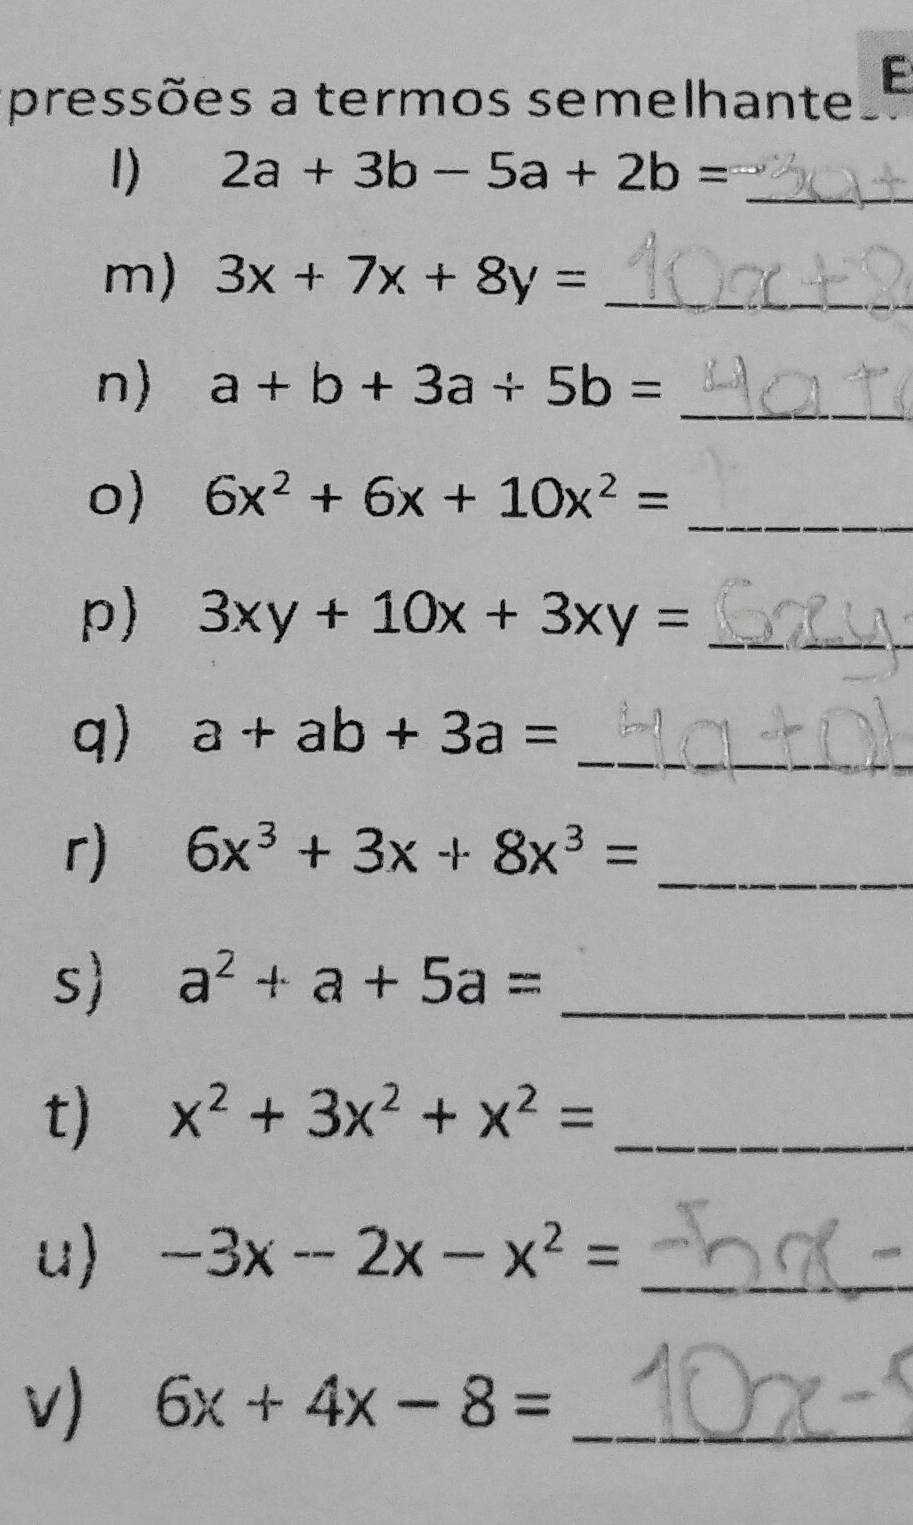 pressões a termos semelhante
E
l) 2a + 3b − 5a + 2b = -3a+
m) 3x + 7x + 8y = 10x+8
n) a + b + 3a + 5b = 4a+
o) 6x² + 6x + 10x² =
p) 3xy + 10x + 3xy = 6xy
q) a + ab + 3a = 4a+ab
r) 6x³ + 3x + 8x³ =
s) a² + a + 5a =
t) x² + 3x² + x² =
u) −3x − 2x − x² = -5x -
v) 6x + 4x − 8 = 10x-